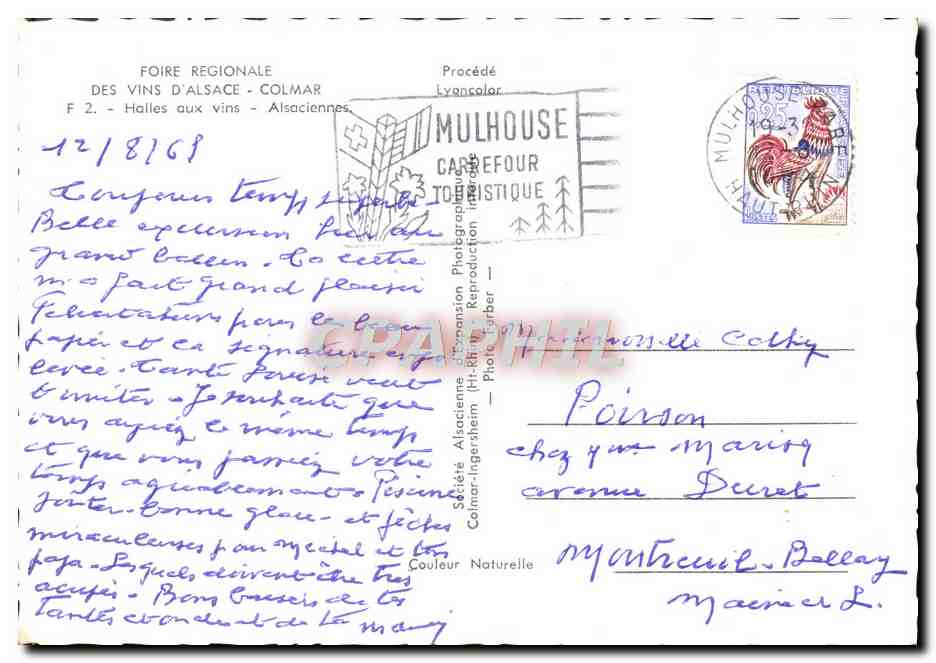 FOIRE REGIONALE
DES VINS D'ALSACE - COLMAR
F 2. - Halles aux vins - Alsaciennes
Procédé
Lyoncolor
MULHOUSE
CARREFOUR
TOURISTIQUE
MULHOUSE GARE
19-3
HAUT-RHIN
12/8/69
Toujours temps superbe.
Belle excursion hier au
grand ballon. Ta lettre
m'a fait grand plaisir
Félicitations pour le beau
papier et la signature enjo
livée. Tante Louise veut
t'imiter. Je souhaite que
vous ayiez le même temps
et que vous passiez votre
temps agréablement. Piscine
goûter. bonne glace. et pêches
miraculeuses pour Michel et ton
papa. Lesquels doivent être très
occupés. Bons baisers de tes
tantes et oncle et de ta mamy
Société Alsacienne d'Expansion Photographique
Colmar-Ingersheim (Ht-Rhin) Reproduction interdite
— Photo Farber —
Couleur Naturelle
CPAPHIL
Mademoiselle Cathy
Poirson
chez Mme Marisq
avenue Duret
Montreuil-Bellay
Maine et L.